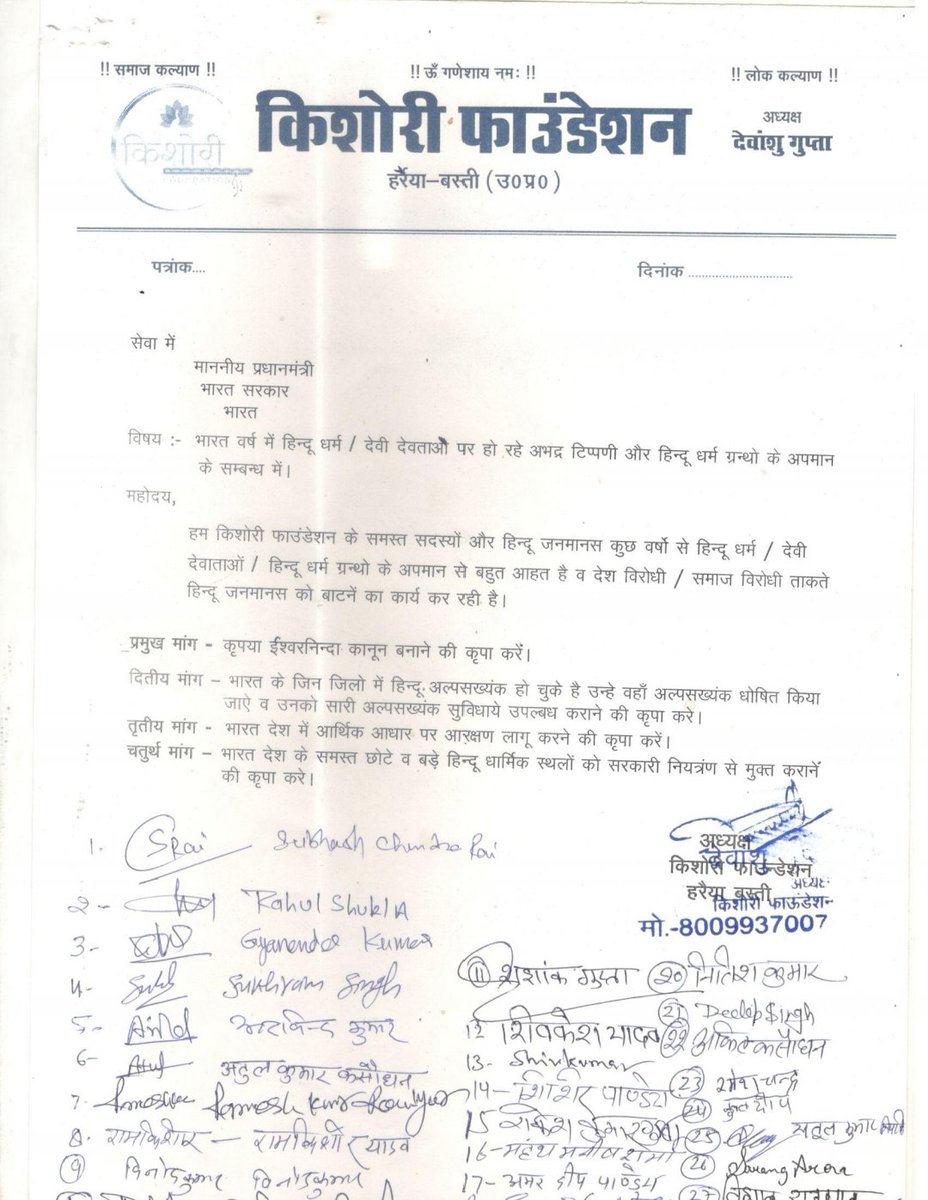 !! समाज कल्याण !!
!! ऊँ गणेशाय नमः !!
!! लोक कल्याण !!
किशोरी
किशोरी फाउंडेशन
अध्यक्ष
देवांशु गुप्ता
हर्रैया–बस्ती (उ0प्र0)
पत्रांक....
दिनांक ............................
सेवा में
माननीय प्रधानमंत्री
भारत सरकार
भारत
विषय :- भारत वर्ष में हिन्दू धर्म / देवी देवताओ पर हो रहे अभद्र टिप्पणी और हिन्दू धर्म ग्रन्थो के अपमान
के सम्बन्ध में।
महोदय,
हम किशोरी फाउंडेशन के समस्त सदस्यों और हिन्दू जनमानस कुछ वर्षो से हिन्दू धर्म / देवी
देवाताओं / हिन्दू धर्म ग्रन्थो के अपमान से बहुत आहत है व देश विरोधी / समाज विरोधी ताकते
हिन्दू जनमानस को बाटनें का कार्य कर रही है।
प्रमुख मांग - कृपया ईश्वरनिन्दा कानून बनाने की कृपा करें।
दितीय मांग – भारत के जिन जिलो में हिन्दू अल्पसख्यंक हो चुके है उन्हे वहाँ अल्पसख्यंक धोषित किया
जाऐ व उनको सारी अल्पसख्यंक सुविधाये उपल्बध कराने की कृपा करे।
तृतीय मांग - भारत देश में आर्थिक आधार पर आरक्षण लागू करने की कृपा करें।
चतुर्थ मांग – भारत देश के समस्त छोटे व बड़े हिन्दू धार्मिक स्थलों को सरकारी नियत्रंण से मुक्त करानें
की कृपा करे।
अध्यक्ष
किशोरी फाउन्डेशन
हरैया बस्ती
किशोरी फाऊंडेशन
मो.-8009937007
1. SRai Subhash Chandra Rai
2- Rahul Shukla
3- Gyanendra Kumar
4- Sukhram Singh
5- Arvind अरविन्द कुमार
6- Atul अतुल कुमार कसौधन
7. Ramesh Kumar
8. रामकिशोर – रामकिशोर यादव
9 विनोद कुमार विनोद कुमार
11 शशांक गुप्ता
12 शिवकेश यादव
13- Shivkumar
14- शिशिर पाण्डेय
15 राकेश कुमार
16- महंथ मनीष शर्मा
17- अमर दीप पाण्डेय
20 नितिश कुमार
21 Deelop Singh
22 अंकित कसौधन
23 रमेश चन्द्र
24 कुलदीप
25 कुमार
26 Sarang Arora
27 विशाल